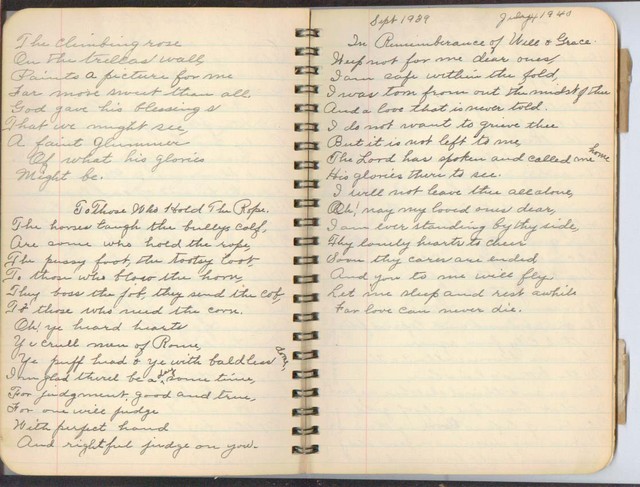 The climbing rose
On the trellas wall,
Paints a picture for me
Far more sweet than all.
God gave his blessings
That we might see,
A faint glimmer
Of what his glories
Might be.
To Those Who Hold The Rope.
The horses laugh the bulleys calf,
Are some who hold the rope,
The pussy foot, the tootsy toot,
To those who blow the horn,
They boss the job, they send the cob,
To those who need the corn.
Oh! ye heard hearts
Ye crull men of Rome,
Ye puff head & ye with baldless dome,
I'm glad there'l be a day some time,
For judgment, good and true,
For one will judge
With perfect hand
And rightful judge on you.
Sept 1939 July 1940
In Rememberance of Will & Grace.
Weep not for me dear ones,
I am safe within the fold,
I was torn from out the midst of thee
And a love that is never told.
I do not want to grieve thee
But it is not left to me,
The Lord has spoken and called me home
His glories there to see.
I will not leave thee all alone,
Oh! nay my loved ones dear,
I am ever standing by thy side,
Thy lonely hearts to cheer
Soon thy cares are ended
And you to me will fly
Let me sleep and rest awhile
For love can never die.